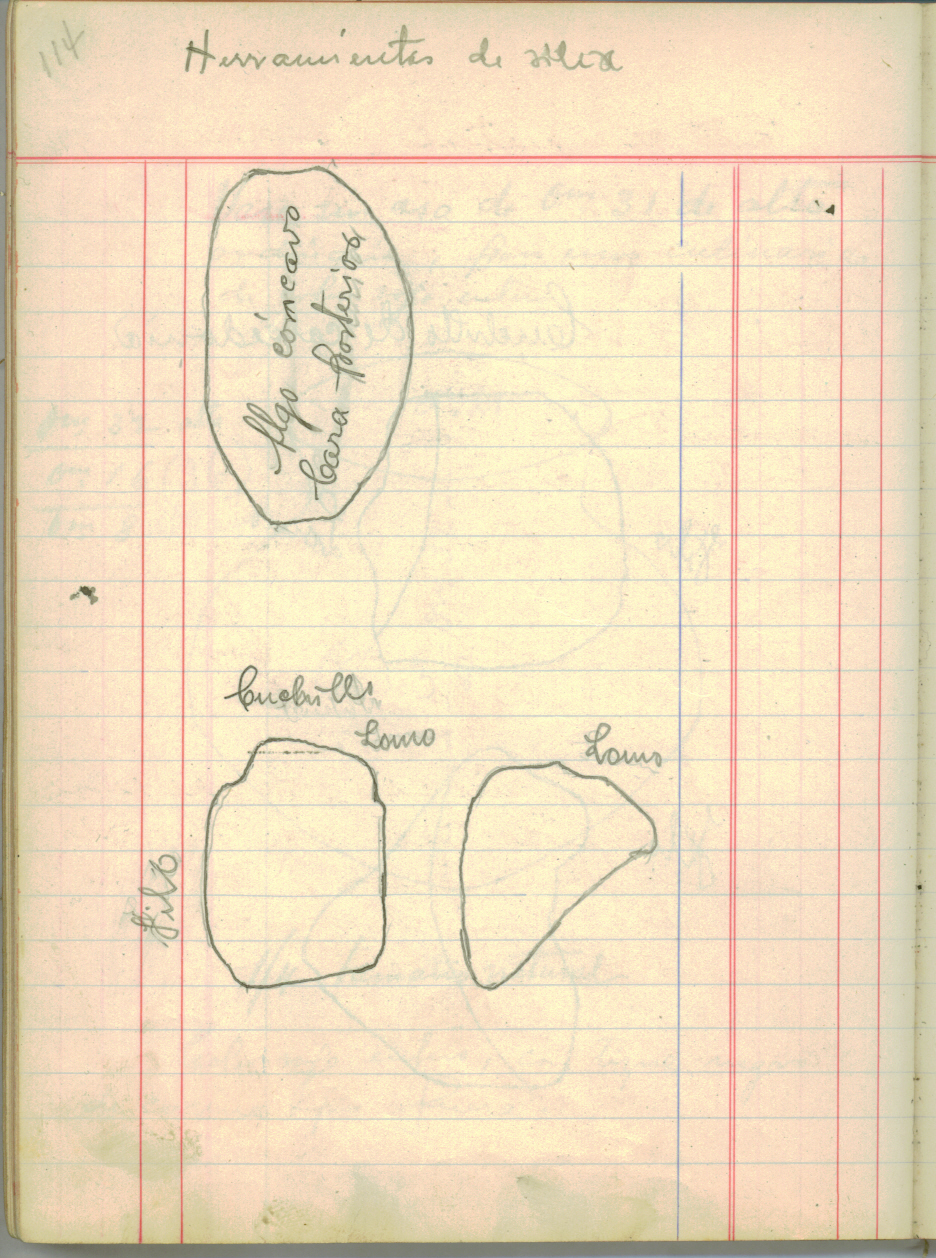 114
Herramientas de silex
Algo cóncavo
Cara posterior
Cuchillo
Lomo
Lomo
Filo